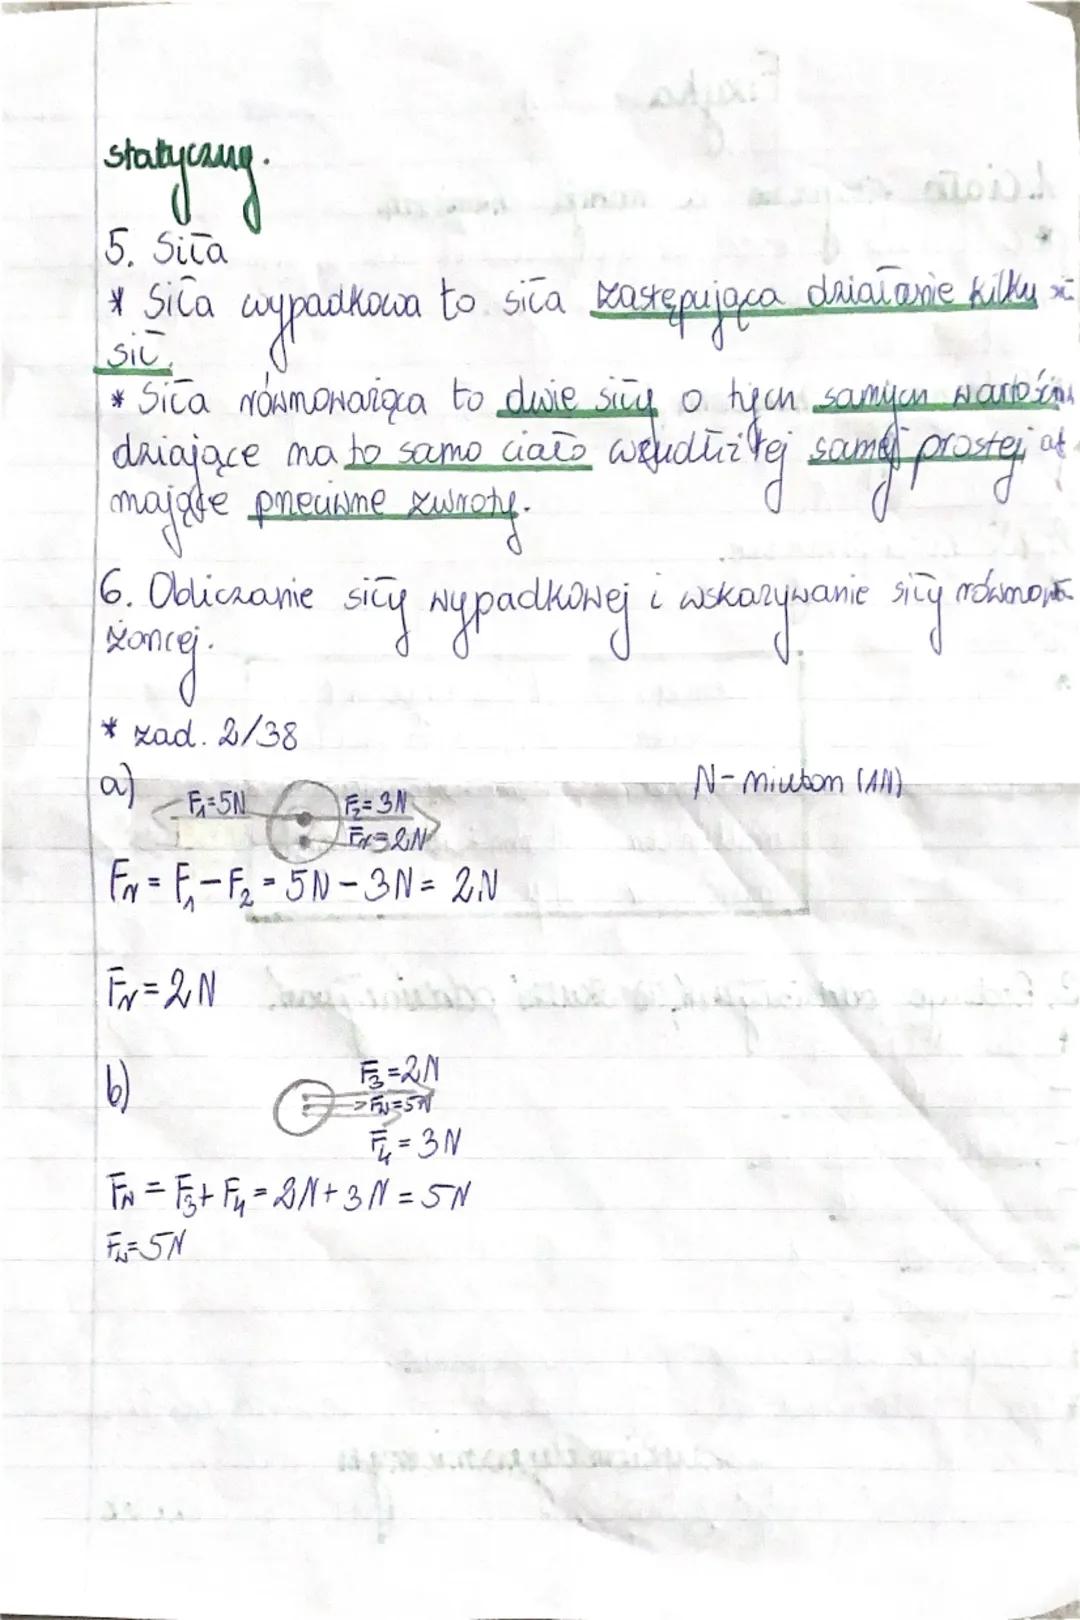 statyczny.
5. Siła
* Siła wypadkowa to siła zastępująca działanie kilku
sił.
* Siła równoważąca to dwie siły o tych samych wartościach
działające na to samo ciało wzdłuż tej samej prostej
mające przeciwne zwroty.
6. Obliczanie siły wypadkowej i wskazywanie siły równowa
żoncej.
* zad. 2/38
a)
N - niuton (1N)
F₁=5N
F₂=3N
Fr=2N
Fw = F₁ - F₂ = 5N - 3N = 2N
Fr = 2N
b)
F₃=2N
Fw=5N
F₄ = 3N
Fw = F₃ + F₄ = 2N + 3N = 5N
Fw=5N